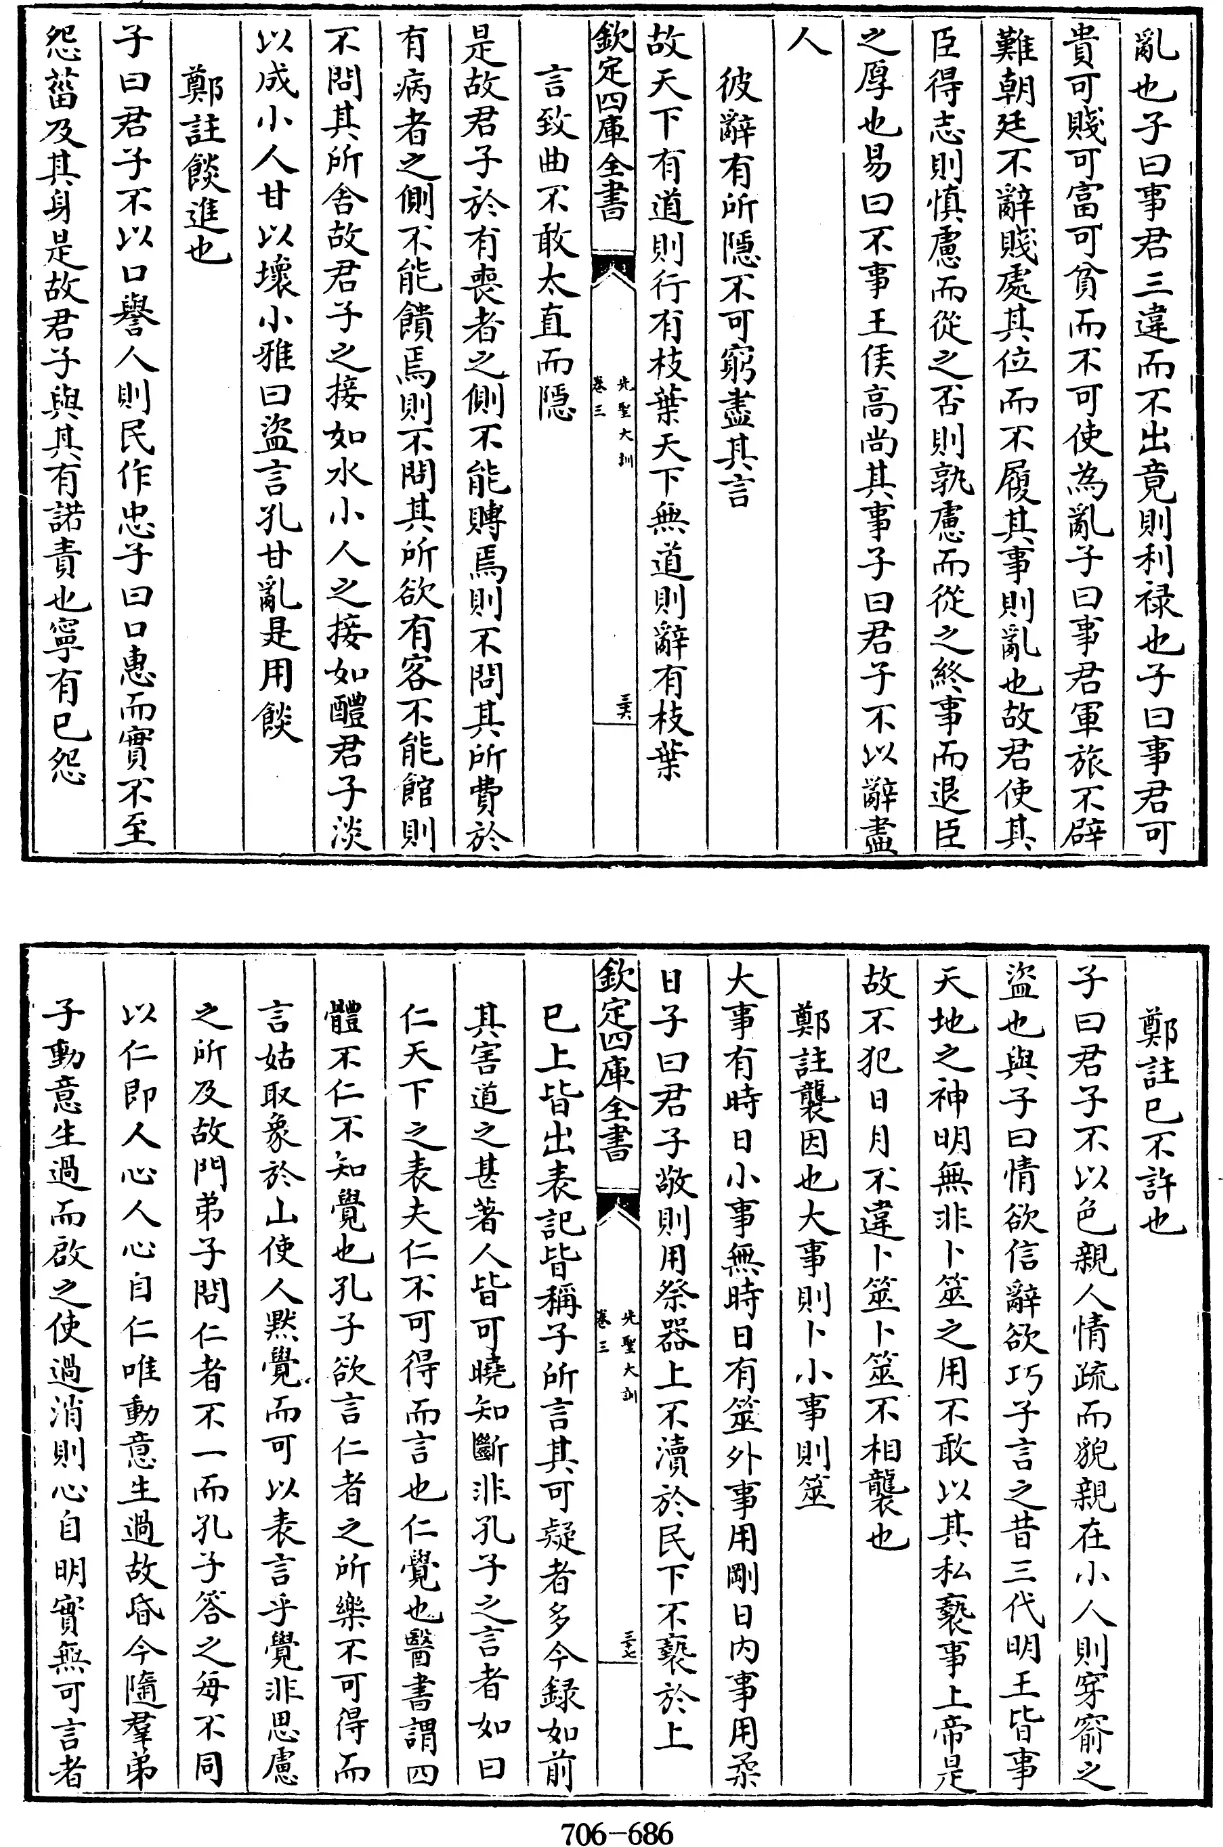 亂也子曰事君三違而不出竟則利禄也子曰事君可
貴可賤可富可貧而不可使為亂子曰事君軍旅不辟
難朝廷不辭賤處其位而不履其事則亂也故君使其
臣得志則慎慮而從之否則孰慮而從之終事而退臣
之厚也易曰不事王侯高尚其事子曰君子不以辭盡
人
彼辭有所隱不可窮盡其言
故天下有道則行有枝葉天下無道則辭有枝葉
欽定四庫全書
先聖大訓
卷三
三六
言致曲不敢太直而隱
是故君子於有喪者之側不能賻焉則不問其所費於
有病者之側不能饋焉則不問其所欲有客不能館則
不問其所舍故君子之接如水小人之接如醴君子淡
以成小人甘以壞小雅曰盜言孔甘亂是用餤
鄭註餤進也
子曰君子不以口譽人則民作忠子曰口惠而實不至
怨菑及其身是故君子與其有諾責也寧有已怨
鄭註已不許也
子曰君子不以色親人情疏而貌親在小人則穿窬之
盜也與子曰情欲信辭欲巧子言之昔三代明王皆事
天地之神明無非卜筮之用不敢以其私褻事上帝是
故不犯日月不違卜筮卜筮不相襲也
鄭註襲因也大事則卜小事則筮
大事有時日小事無時日有筮外事用剛日内事用柔
日子曰君子敬則用祭器上不瀆於民下不褻於上
欽定四庫全書
先聖大訓
卷三
三七
已上皆出表記皆稱子所言其可疑者多今録如前
其害道之甚著人皆可曉知斷非孔子之言者如曰
仁天下之表夫仁不可得而言也仁覺也醫書謂四
體不仁不知覺也孔子欲言仁者之所樂不可得而
言姑取象於山使人黙覺而可以表言乎覺非思慮
之所及故門弟子問仁者不一而孔子答之每不同
以仁即人心人心自仁唯動意生過故昏今隨羣弟
子動意生過而啟之使過消則心自明實無可言者
706-686